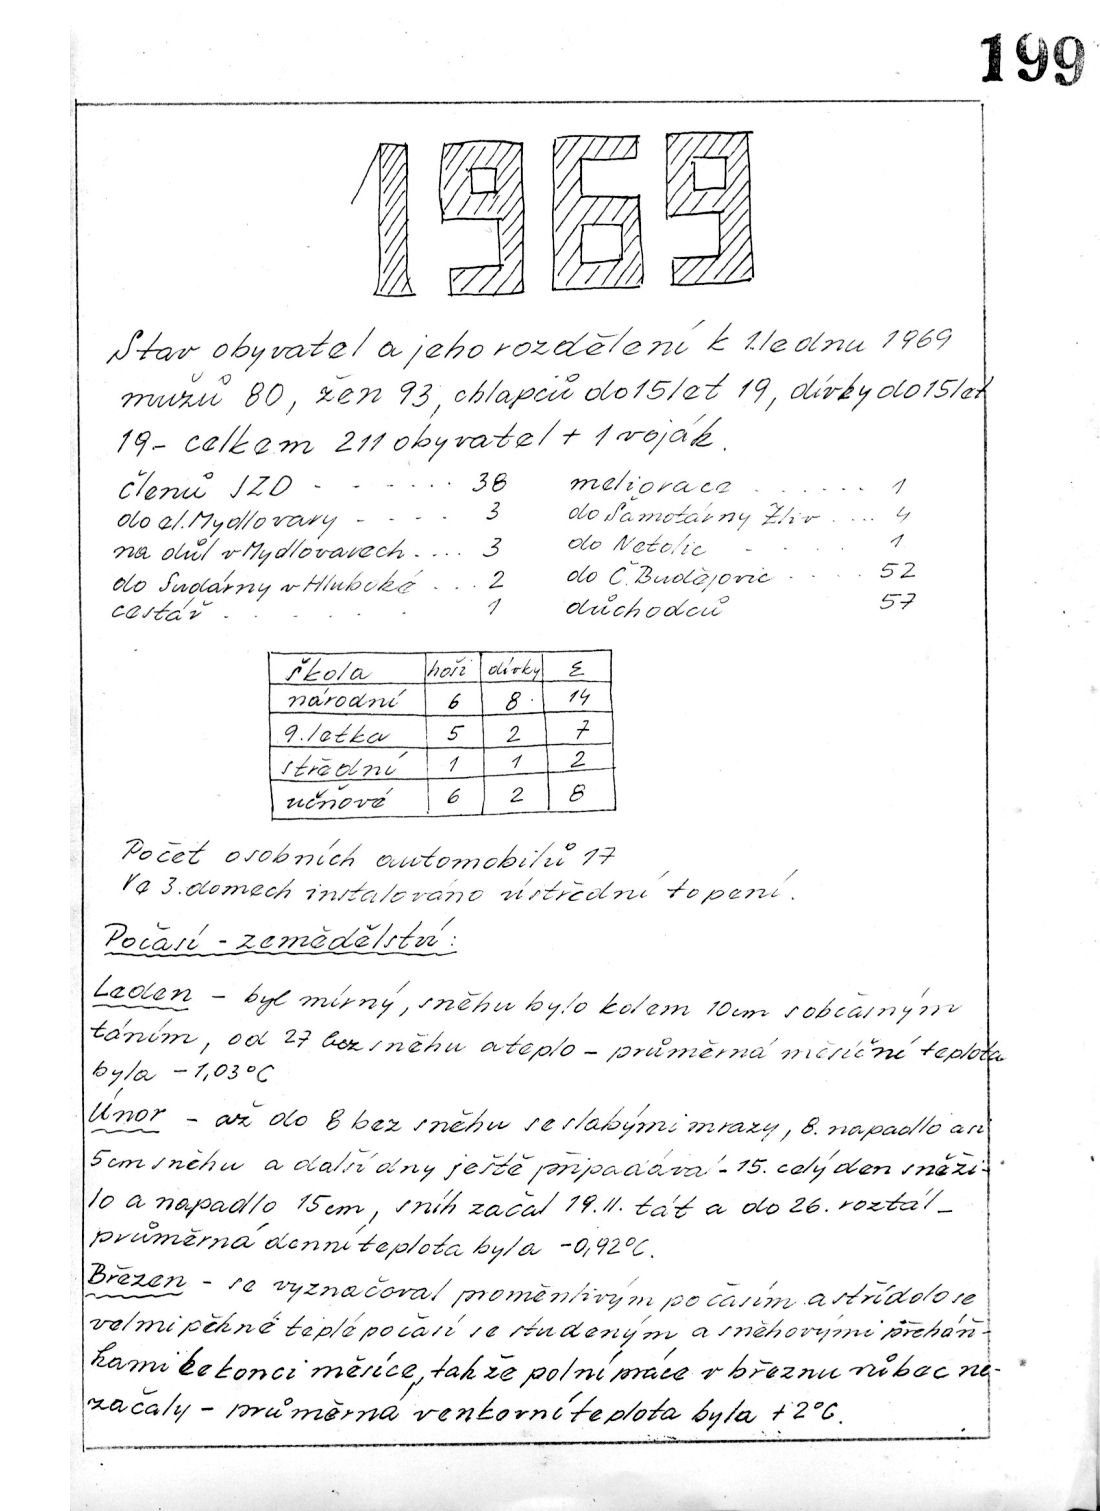 199
1969
Stav obyvatel a jeho rozdělení k 1. lednu 1969
mužů 80, žen 93, chlapců do 15 let 19, dívky do 15 let
19 - celkem 211 obyvatel + 1 voják.
členů JZD - - ..... 38 meliorace ....... 1
do el. Mydlovary - - - - 3 do Šamotárny Zliv .... 4
na důl v Mydlovarech .... 3 do Netolic - . . 1
do Sudárny v Hluboké ... 2 do Č. Budějovic - .... 52
cestář . . . . . 1 důchodců 57
škola hoši dívky Σ
národní 6 8 14
9. letka 5 2 7
střední 1 1 2
učňové 6 2 8
Počet osobních automobilů 17
Ve 3. domech instalováno ústřední topení.
Počasí - zemědělství:
Leden - byl mírný, sněhu bylo kolem 10 cm s občasným
táním, od 27 bez sněhu a teplo - průměrná měsíční teplota
byla -1,03°C
Únor - až do 8 bez sněhu se slabými mrazy, 8. napadlo asi
5 cm sněhu a další dny ještě připadává - 15. celý den sněži-
lo a napadlo 15 cm, sníh začal 19. II. tát a do 26. roztál -
průměrná denní teplota byla -0,92°C.
Březen - se vyznačoval proměnlivým počasím a střídalo se
velmi pěkné teplé počasí se studeným a sněhovými přeháň-
kami ke konci měsíce, takže polní práce v březnu vůbec ne-
začaly - průměrná venkovní teplota byla +2°C.